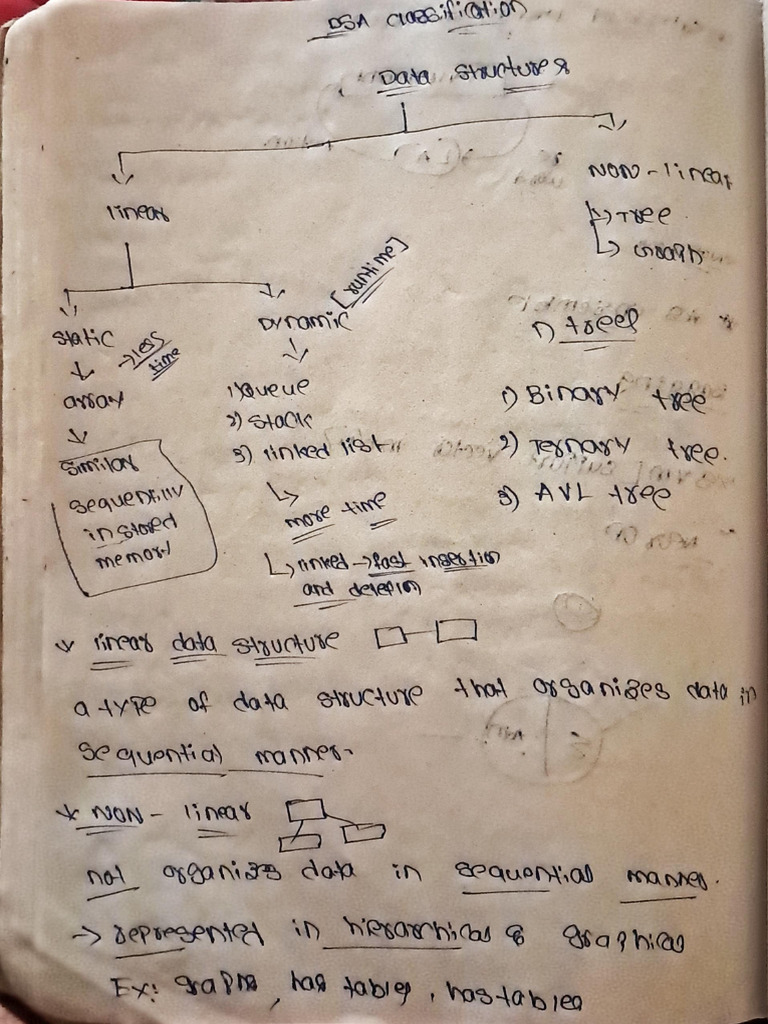 DSA Classification
Data Structures
linear
NON-linear
Tree
Graph
Static
→ less time
array
similar
sequentially
in stored
memory
Dynamic
[Runtime]
1) Queue
2) Stack
3) linked list
more time
linked → fast insertion
and deletion
1) trees
1) Binary tree
2) Ternary tree.
3) AVL tree
* linear data structure
a type of data structure that organizes data in
sequential manner.
* NON-linear
not organizes data in sequential manner.
→ represented in hierarchical & graphical
Ex: graphs, has tables, hastables